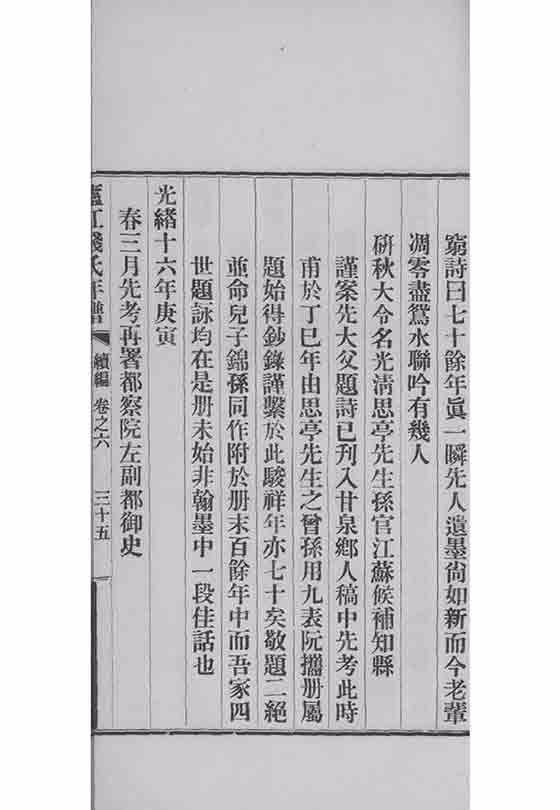 窮詩曰七十餘年眞一瞬先人遺墨尙如新而今老輩
凋零盡鴛水聯吟有幾人
硏秋大令名光淸思亭先生孫官江蘇候補知縣
謹案先大父題詩已刋入甘泉鄕人稿中先考此時
甫於丁巳年由思亭先生之曾孫用九表阮攜册屬
題始得鈔錄謹繫於此駿祥年亦七十矣敬題二絕
並命兒子錦孫同作附於册末百餘年中而吾家四
世題詠均在是册未始非翰墨中一段佳話也
光緖十六年庚寅
春三月先考再署都察院左副都御史
廬江錢氏年譜 續編 卷之六 三十五